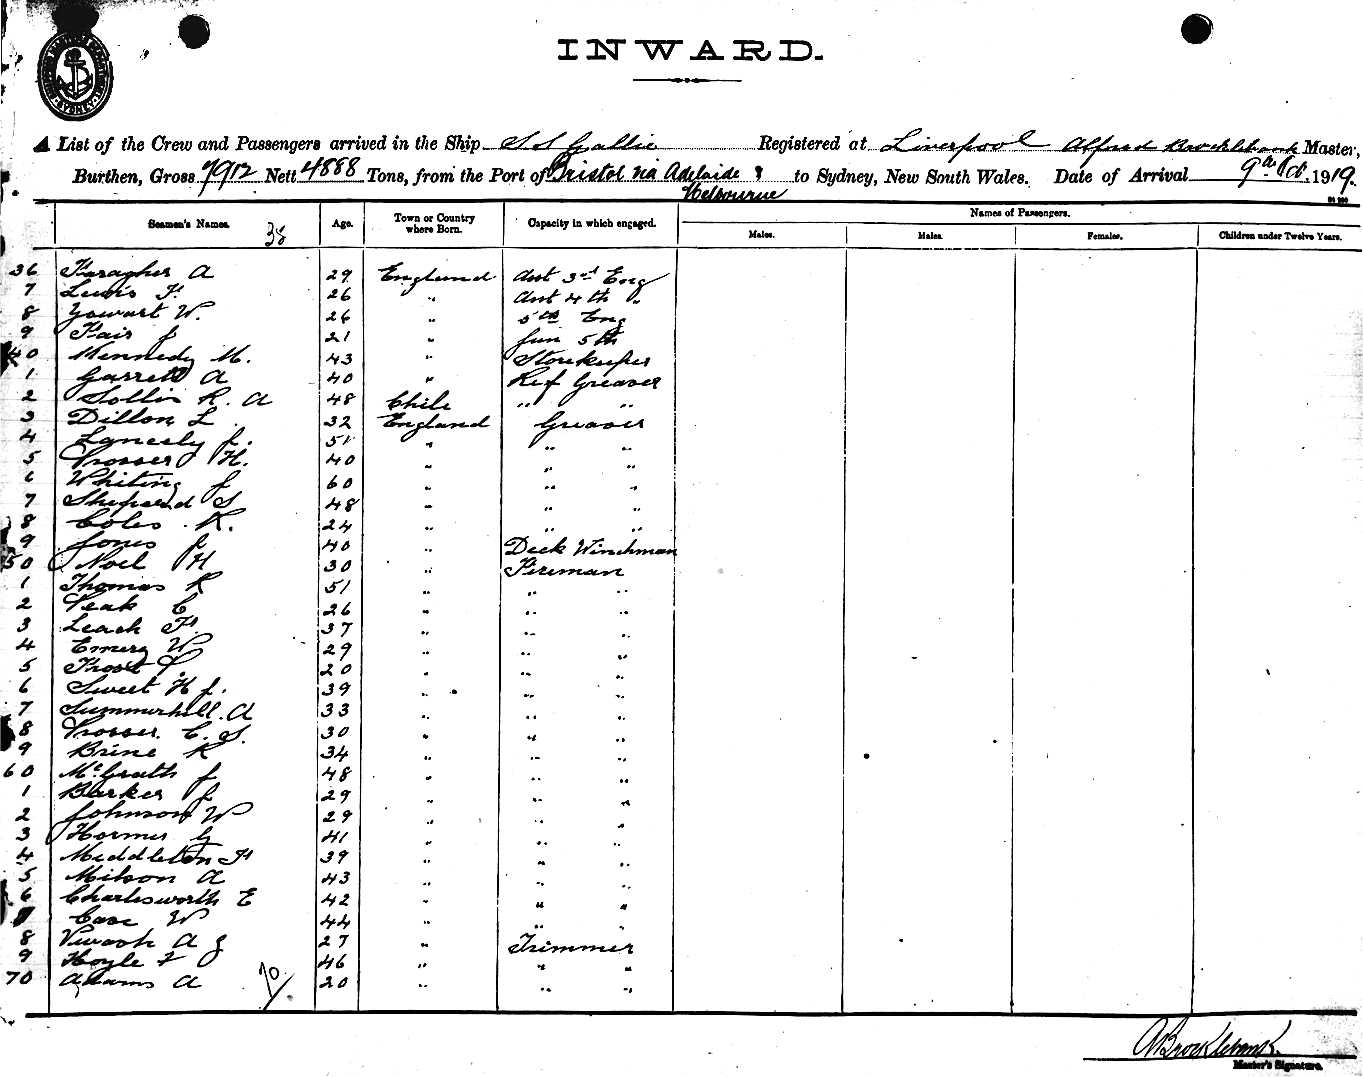 INWARD.
A List of the Crew and Passengers arrived in the Ship SS Gallic Registered at Liverpool Alfred Brocklebank Master,
Burthen, Gross 7912 Nett 4888 Tons, from the Port of Bristol via Adelaide & Melbourne to Sydney, New South Wales. Date of Arrival 9th Oct. 1919.
Seamen's Names. 35 Age. Town or Country where Born. Capacity in which engaged. Names of Passengers.
Males. Males. Females. Children under Twelve Years.
36 Faragher A 29 England Asst 3rd Eng
7 Lewis F. 26 " Asst 4th "
8 Yowart W. 26 " 5th Eng
9 Fair J 21 " Jun 5th
40 Kennedy M. 43 " Storekeeper
1 Garrett A 40 " Ref Greaser
2 Sollis R. A 48 Chile " "
3 Dillon L 32 England Greaser
4 J. 51 " " "
5 Prosser H. 40 " " "
6 Whiting J 60 " " "
7 Sheppard S 48 " " "
8 Coles R. 24 " " "
9 Jones J 40 " Deck Winchman
50 Noel H 30 " Fireman
1 Thomas R 51 " " "
2 Peak C 26 " " "
3 Leach F. 37 " " "
4 Emery W 29 " " "
5 20 " " "
6 Sweet H J. 39 " " "
7 Summerhill. A 33 " " "
8 Prosser. C. S. 30 " " "
9 Brine R 34 " " "
60 McGrath J 48 " " "
1 Barker J 29 " " "
2 Johnson W 29 " " "
3 G 41 " " "
4 Middleton F 39 " " "
5 Milson A 43 " " "
6 Charlesworth E 42 " " "
7 Case W 44 " " "
8 Vivash A J 27 " Trimmer
9 Hoyle F 46 " " "
70 Adams A 70/. 20 " " "
A Brocklebank.
Master's Signature.